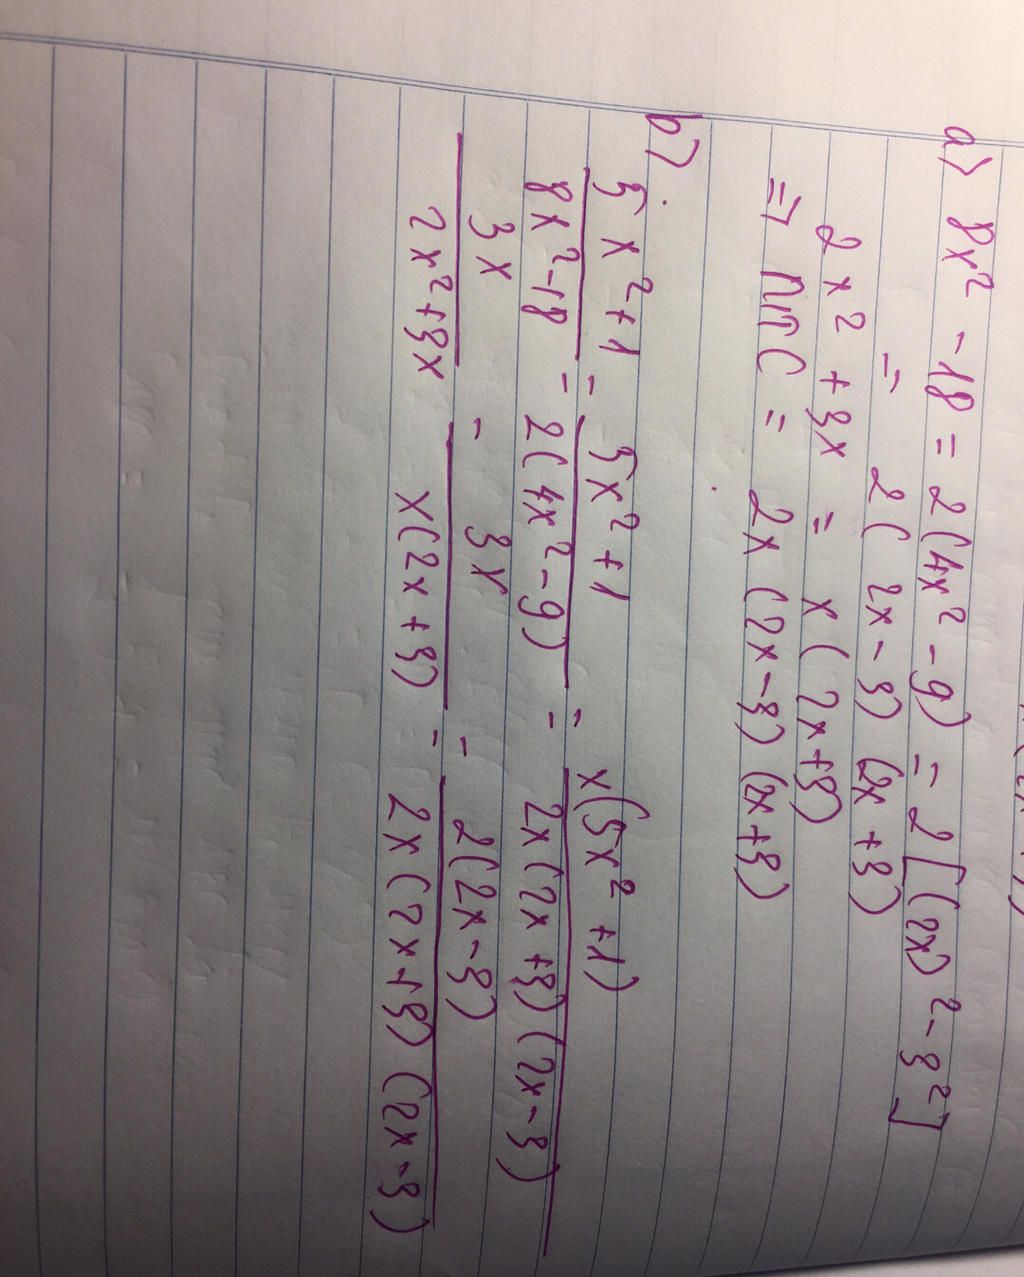 a) 8x² - 18 = 2(4x² - 9) = 2[(2x)² - 3²]
= 2(2x - 3)(2x + 3)
2x² + 3x = x(2x + 3)
=> MTC = 2x(2x - 3)(2x + 3)
b) (5x² + 1)/(8x² - 18) = (5x² + 1)/(2(4x² - 9)) = x(5x² + 1)/(2x(2x + 3)(2x - 3))
3x/(2x² + 3x) = 3x/(x(2x + 3)) = 2(2x - 3)/(2x(2x + 3)(2x - 3))